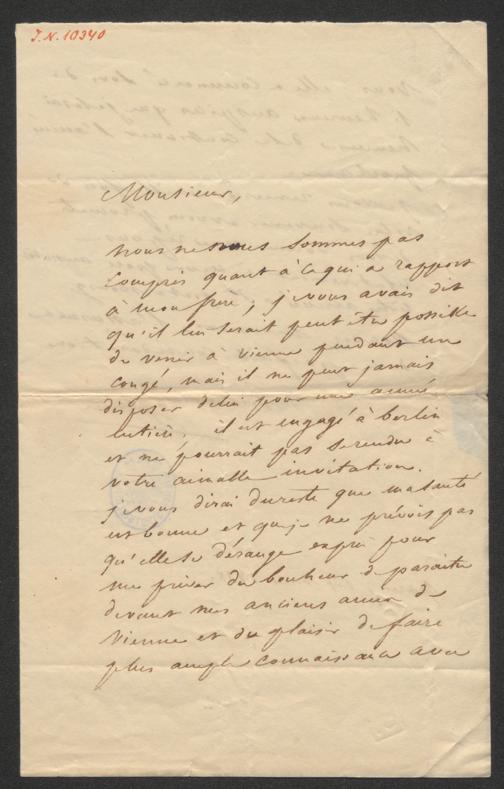 J. N. 10340
Monsieur,
nous ne nous sommes pas
compris quant à ce qui a rapport
à mon frere, je vous avais dit
qu'il lui serait peut être possible
de venir à vienne pendant un
congé, mais il ne peut jamais
disposer de lui pour une année
entière, il est engagé à berlin
et ne pourrait pas se rendre à
votre aimable invitation.
je vous dirai du reste que ma santé
est bonne et que je ne prévois pas
qu'elle se dérange exprès pour
me priver du bonheur de paraitre
devant mes anciens amis de
Vienne et du plaisir de faire
plus ample connaissance avec